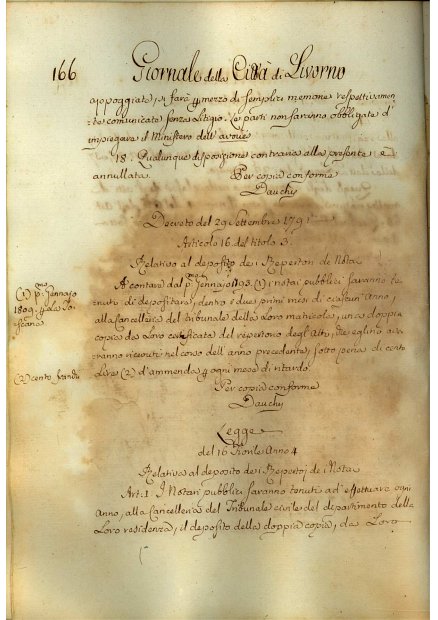 166 Giornale della Città di Livorno
appoggiate, si farà p mezzo di semplici memorie respettivamen-
te comunicate senza litigio. Le parti non saranno obbligate d'
impiegare il Ministero dell'avoué
18. Qualunque disposizione contraria alla presente è
annullata.
Per copia conforme
Dauchy
Decreto del 29 Settembre 1791
Articolo 16. del titolo 3.
Relativo al deposito dei Repertori de Notai
A contare dal p.mo Jennajo 1793. (1) i notai pubblici saranno te-
nuti di depositare, dentro i due primi mesi di ciascun Anno,
alla Cancelleria del tribunale della Loro matricola, una doppia
copia da Loro certificata del repertorio degli Atti, che eglino av-
ranno ricevuti nel corso dell'anno precedente, sotto pena di cento
Lire (2) d'ammenda p ogni mese di ritardo.
(1) p.mo Jennajo
1809. p La To-
scana
(2) cento franchi
Per copia conforme
Dauchy
Legge
del 16 Fiorile Anno 4
Relativa al deposito dei Repertorj dei Notai
Art: 1. I Notari pubblici saranno tenuti ad effettuare ogni
Anno, alla Cancelleria del Tribunale civile del dipartimento della
Loro residenza, il deposito della doppia copia, da Loro